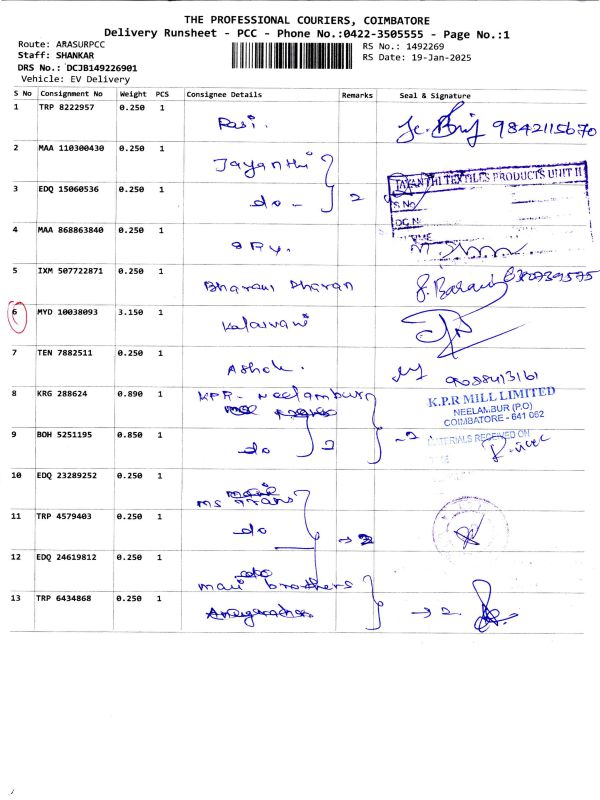 THE PROFESSIONAL COURIERS, COIMBATORE
Delivery Runsheet - PCC - Phone No.:0422-3505555 - Page No.:1
Route: ARASURPCC
Staff: SHANKAR
DRS No.: DCJB149226901
Vehicle: EV Delivery
RS No.: 1492269
RS Date: 19-Jan-2025
S No Consignment No Weight PCS Consignee Details Remarks Seal & Signature
1 TRP 8222957 0.250 1 Rasi. 9842115670
2 MAA 110300430 0.250 1 Jayanthi
3 EDQ 15060536 0.250 1 do - 2
JAYANTHI TEXTILES PRODUCTS UNIT II
S.No
4 MAA 868863840 0.250 1 SRY.
5 IXM 507722871 0.250 1 Bharani Dharan
6 MYD 10038093 3.150 1 Kalaivani
7 TEN 7882511 0.250 1 Ashok.
8 KRG 288624 0.890 1 KPR - Neelambur
K.P.R MILL LIMITED
NEELAMBUR (P.O)
COIMBATORE - 641 062
MATERIALS RECEIVED ON
9 BOH 5251195 0.850 1 do 2 → 2
10 EDQ 23289252 0.250 1 ms
11 TRP 4579403 0.250 1 do → 2
12 EDQ 24619812 0.250 1 brothers
13 TRP 6434868 0.250 1 → 2.